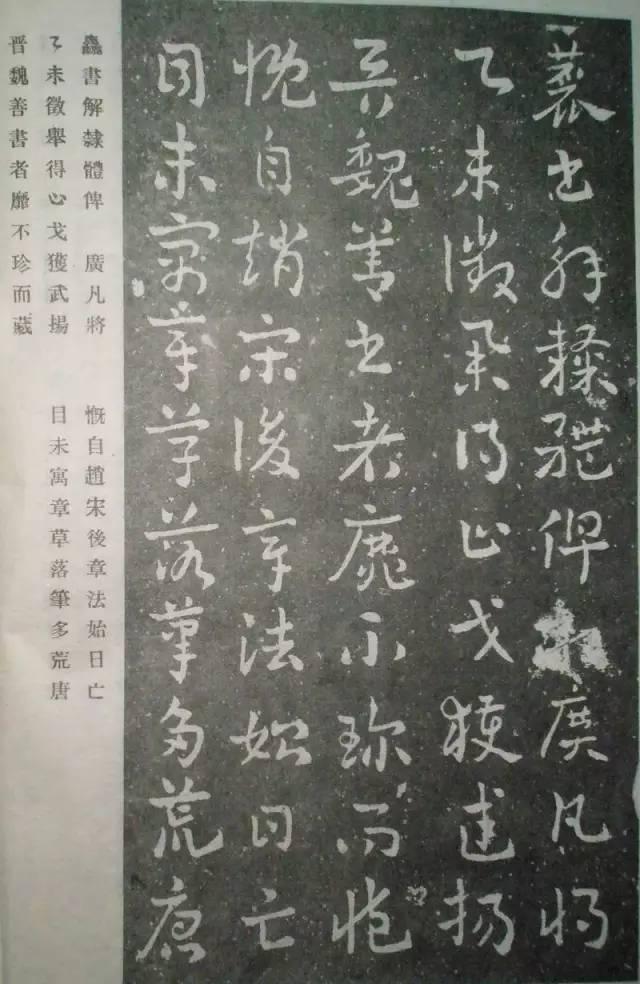 蠡書解隸體俾廣凡將
乙未徵舉得止戈獲武揚
晉魏善書者靡不珍而藏
慨自趙宋後章法始日亡
目未寓章草落筆多荒唐
蠡書解隸體俾　廣凡將
乙未徵舉得心戈獲武揚
晉魏善書者靡不珍而藏
慨自趙宋後章法始日亡
目未寓章草落筆多荒唐